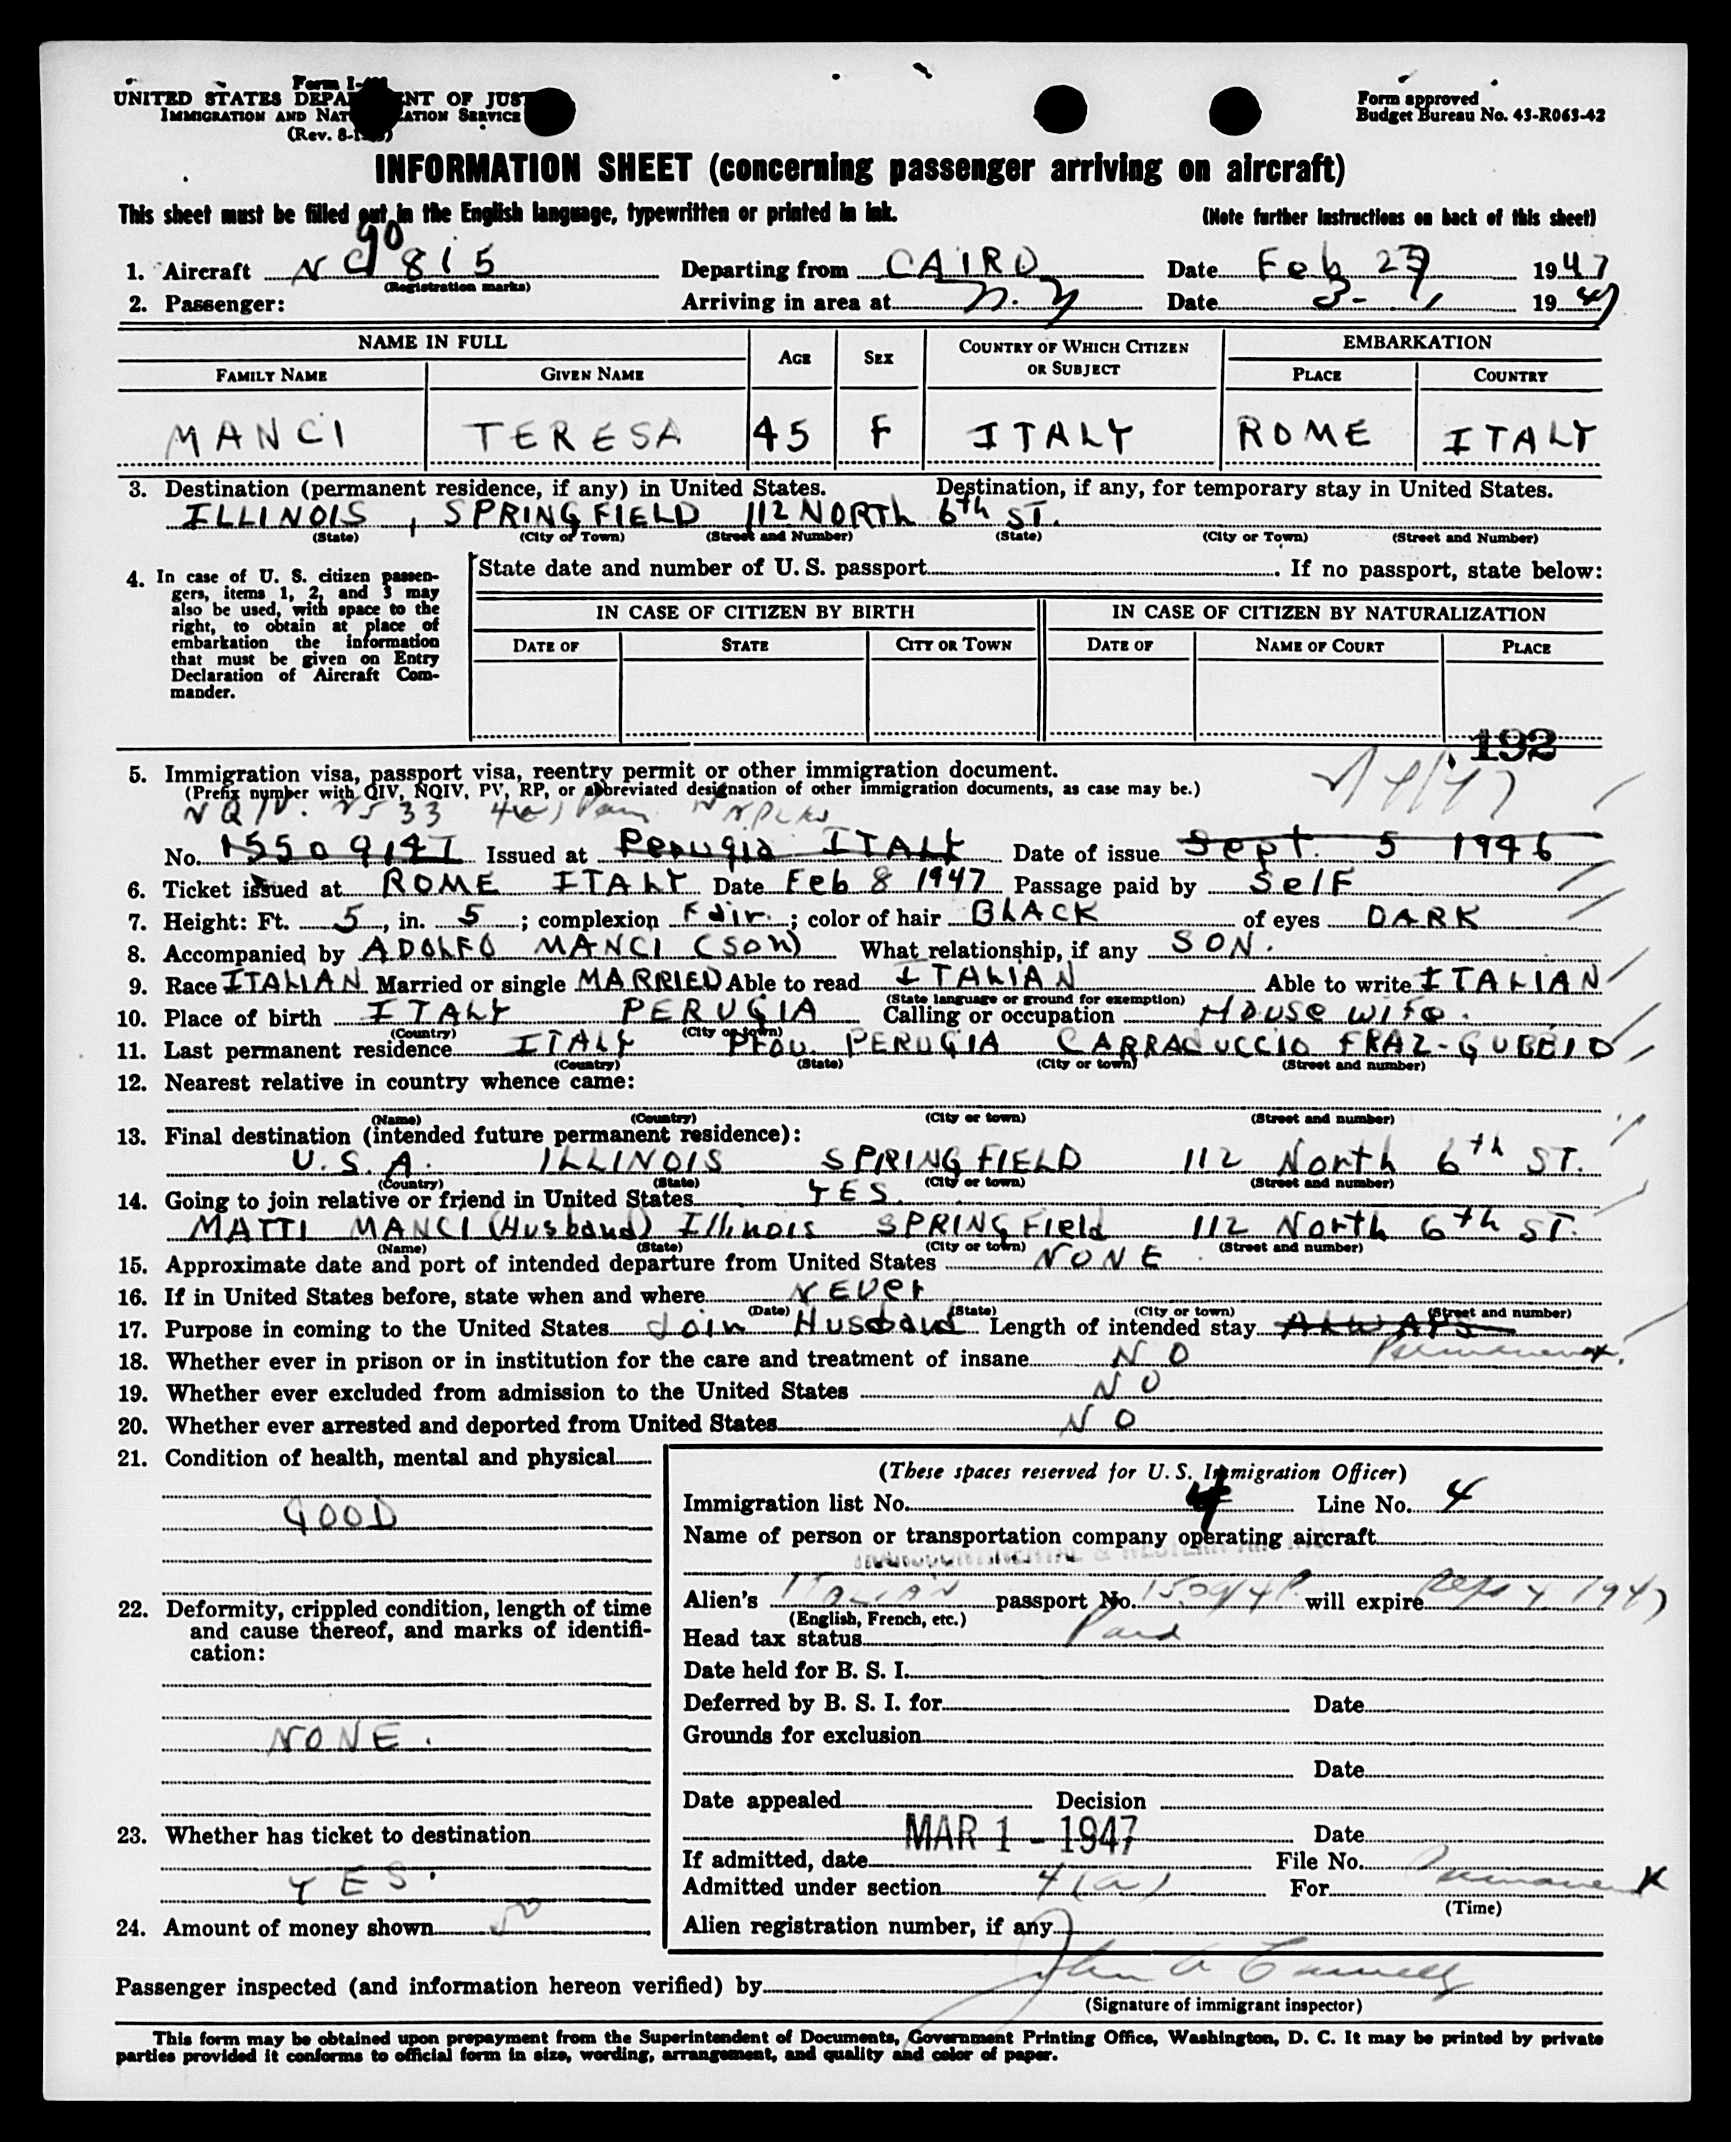 Form I-
UNITED STATES DEPARTMENT OF JUSTICE
IMMIGRATION AND NATURALIZATION SERVICE
(Rev. 8-1
Form approved
Budget Bureau No. 43-R063-42
INFORMATION SHEET (concerning passenger arriving on aircraft)
This sheet must be filled out in the English language, typewritten or printed in ink. (Note further instructions on back of this sheet)
90
1. Aircraft NC 815 Departing from CAIRO Date Feb 27 1947
(Registration marks)
2. Passenger: Arriving in area at N.Y Date 3-1 1947
NAME IN FULL AGE SEX COUNTRY OF WHICH CITIZEN OR SUBJECT EMBARKATION
FAMILY NAME GIVEN NAME PLACE COUNTRY
MANCI TERESA 45 F ITALY ROME ITALY
3. Destination (permanent residence, if any) in United States. Destination, if any, for temporary stay in United States.
ILLINOIS, SPRINGFIELD 112 NORTH 6th ST.
(State) (City or Town) (Street and Number) (State) (City or Town) (Street and Number)
4. In case of U. S. citizen passen-
gers, items 1, 2, and 3 may
also be used, with space to the
right, to obtain at place of
embarkation the information
that must be given on Entry
Declaration of Aircraft Com-
mander.
State date and number of U. S. passport. If no passport, state below:
IN CASE OF CITIZEN BY BIRTH IN CASE OF CITIZEN BY NATURALIZATION
DATE OF STATE CITY OR TOWN DATE OF NAME OF COURT PLACE
192
5. Immigration visa, passport visa, reentry permit or other immigration document.
(Prefix number with QIV, NQIV, PV, RP, or abbreviated designation of other immigration documents, as case may be.)
NQIV. 2533 4(a)
No. 15509147 Issued at Perugia ITALY Date of issue Sept. 5 1946
6. Ticket issued at ROME ITALY Date Feb 8 1947 Passage paid by Self
7. Height: Ft. 5, in. 5; complexion Fair.; color of hair BLACK of eyes DARK
8. Accompanied by ADOLFO MANCI (SON) What relationship, if any SON.
9. Race ITALIAN Married or single MARRIED Able to read ITALIAN Able to write ITALIAN
(State language or ground for exemption)
10. Place of birth ITALY PERUGIA Calling or occupation House wife.
(Country) (City or town)
11. Last permanent residence ITALY Prov. PERUGIA CARRADUCCIO FRAZ-GUBBIO
(Country) (State) (City or town) (Street and number)
12. Nearest relative in country whence came:
(Name) (Country) (City or town) (Street and number)
13. Final destination (intended future permanent residence):
U.S.A. ILLINOIS SPRINGFIELD 112 North 6th ST.
(Country) (State) (City or town) (Street and number)
14. Going to join relative or friend in United States YES.
MATTI MANCI (Husband) Illinois SPRINGField 112 North 6th ST.
(Name) (State) (City or town) (Street and number)
15. Approximate date and port of intended departure from United States NONE
16. If in United States before, state when and where NEVer
(Date) (State) (City or town) (Street and number)
17. Purpose in coming to the United States Join Husband Length of intended stay ALWAYS
Permanent.
18. Whether ever in prison or in institution for the care and treatment of insane NO
19. Whether ever excluded from admission to the United States NO
20. Whether ever arrested and deported from United States NO
21. Condition of health, mental and physical
GOOD
22. Deformity, crippled condition, length of time
and cause thereof, and marks of identifi-
cation:
NONE.
23. Whether has ticket to destination
YES.
24. Amount of money shown 50
(These spaces reserved for U. S. Immigration Officer)
Immigration list No. 4 Line No. 4
Name of person or transportation company operating aircraft
Alien's ITALIAN passport No. will expire Sept 4 1947
(English, French, etc.)
Head tax status Paid
Date held for B. S. I.
Deferred by B. S. I. for Date
Grounds for exclusion
Date
Date appealed Decision
MAR 1 - 1947 Date
If admitted, date File No.
Admitted under section 4(a) For Permanent
(Time)
Alien registration number, if any
Passenger inspected (and information hereon verified) by John A
(Signature of immigrant inspector)
This form may be obtained upon prepayment from the Superintendent of Documents, Government Printing Office, Washington, D. C. It may be printed by private
parties provided it conforms to official form in size, wording, arrangement, and quality and color of paper.